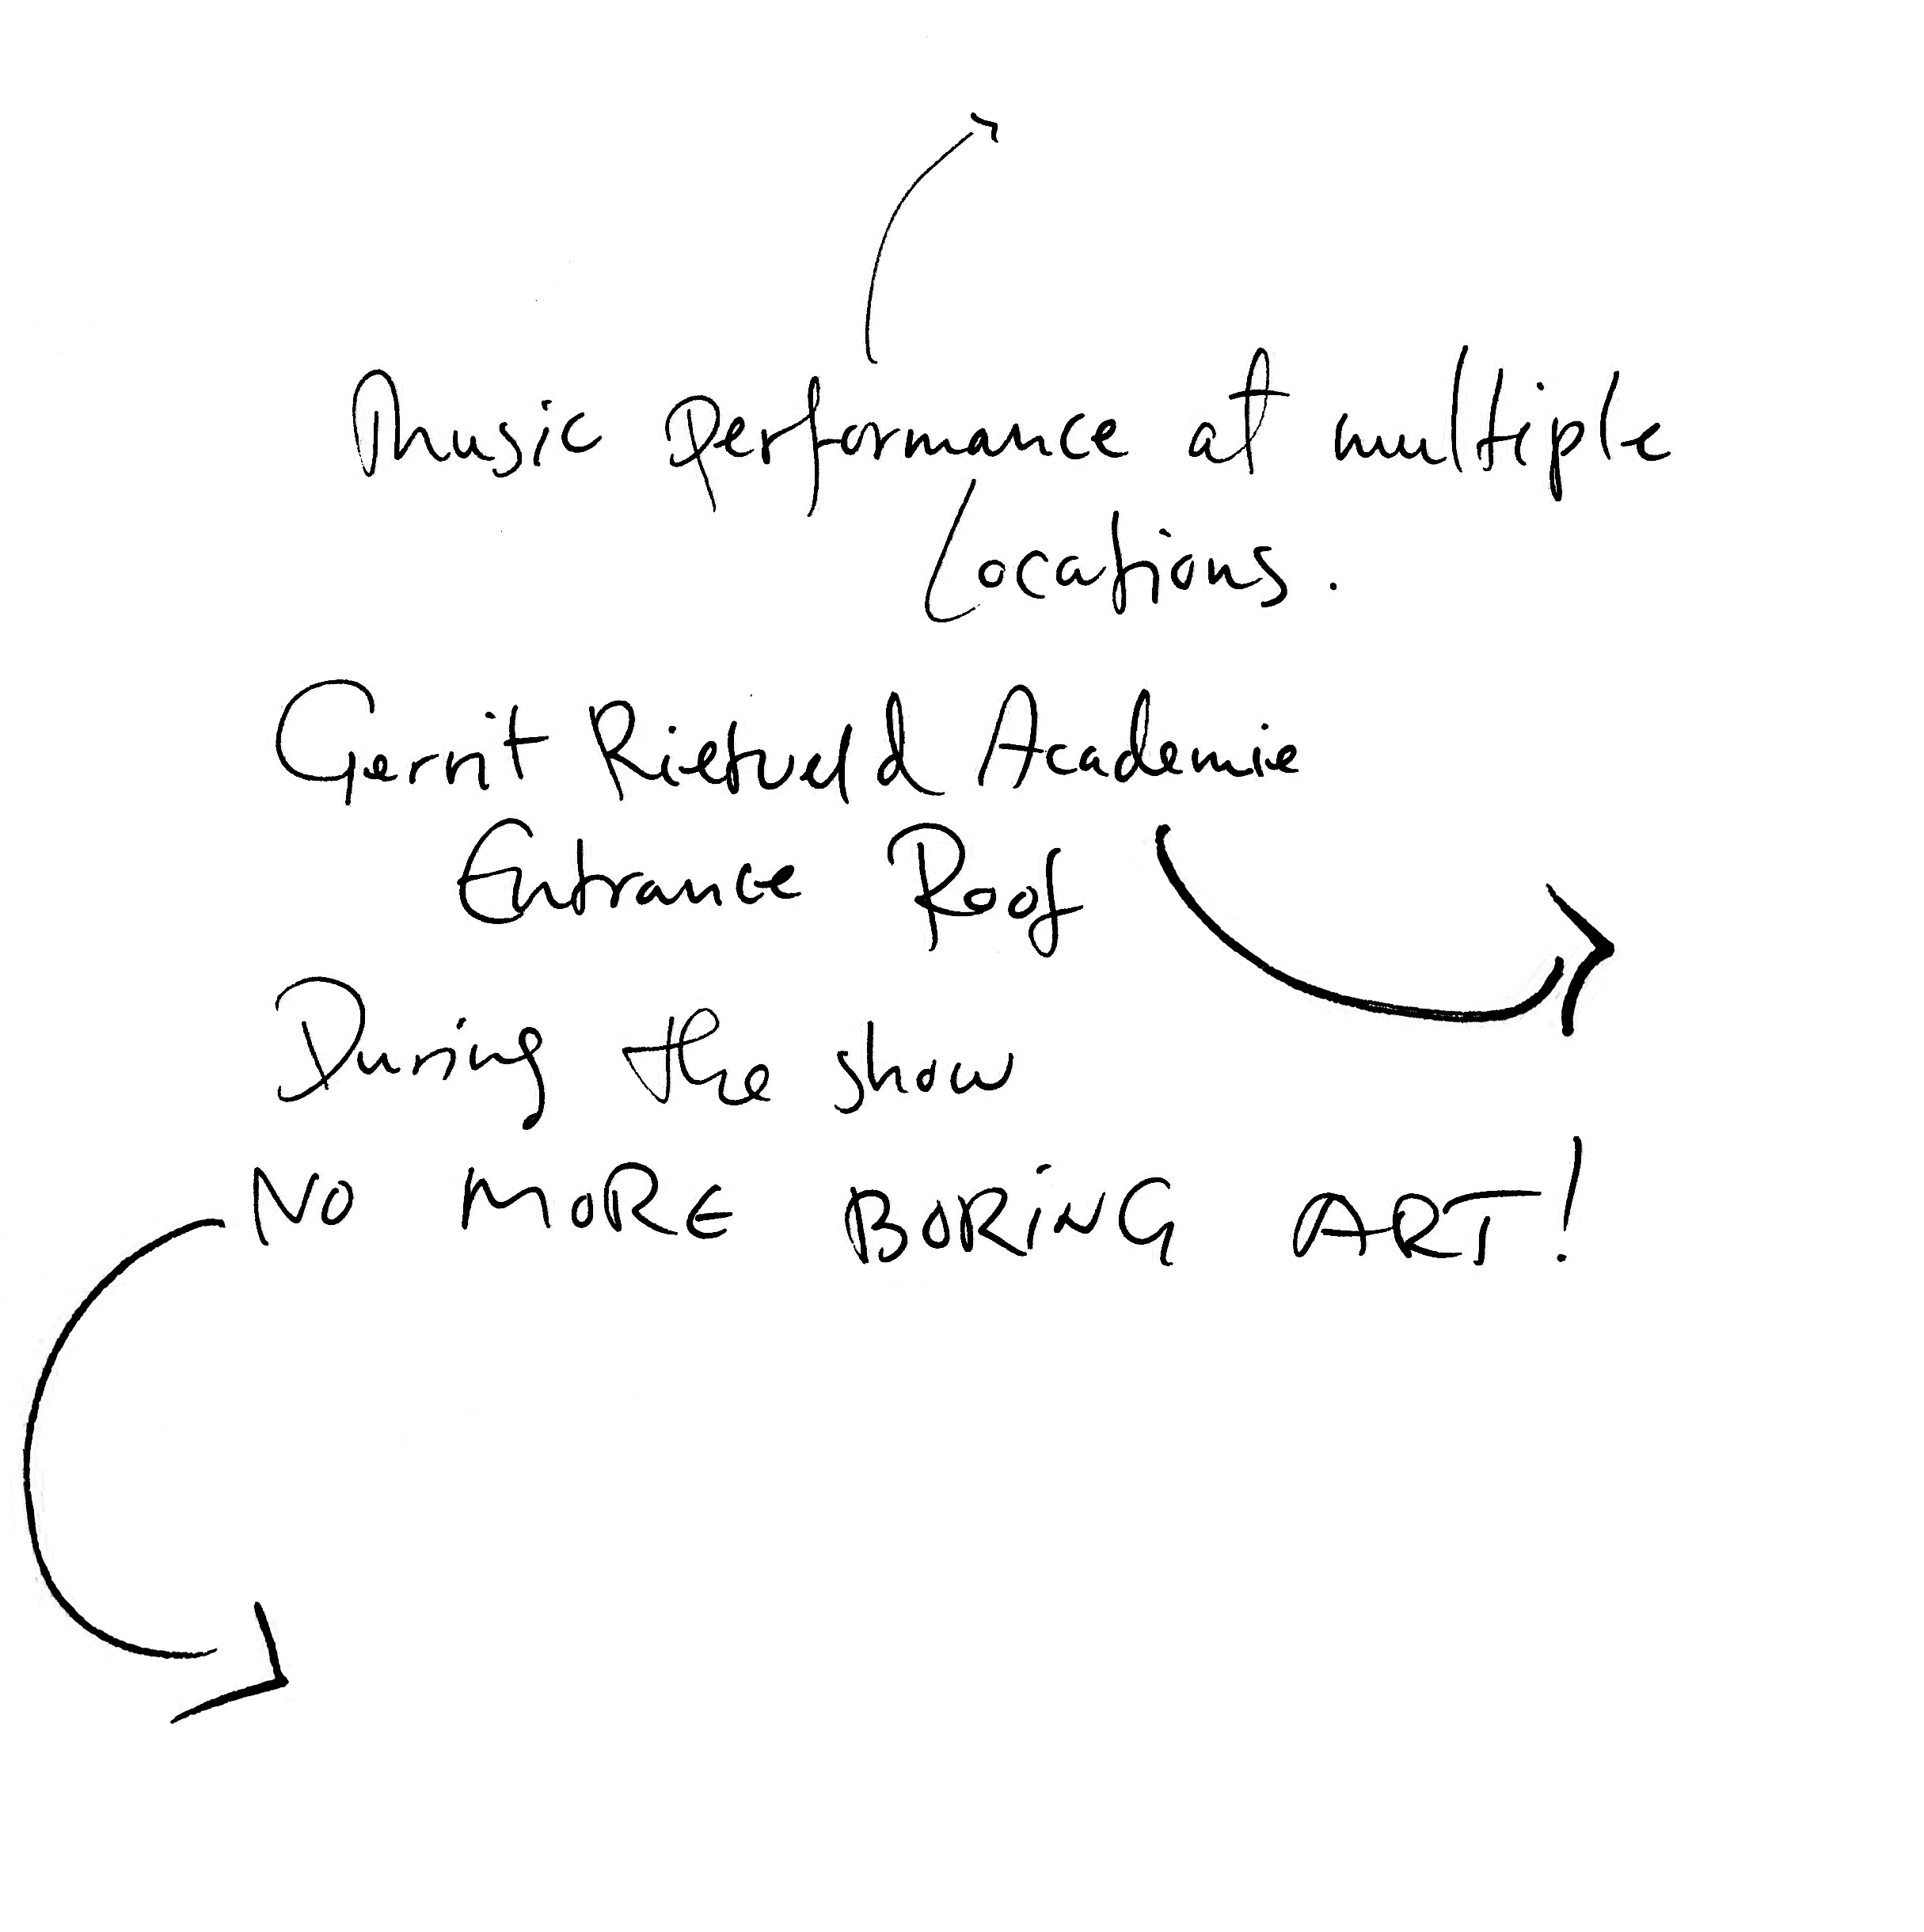 Music Performance at multiple
Locations.
Gerrit Rietveld Academie
Entrance Roof
During the show
NO MORE BORING ART!